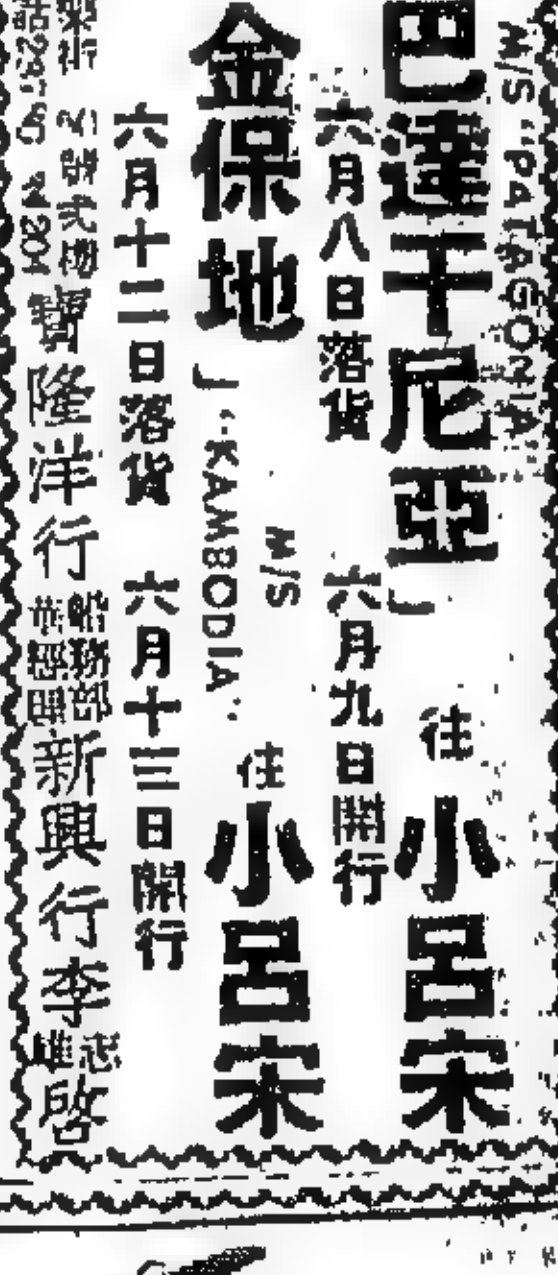 M/S "PATAGONIA"
巴達干尼亞」 往 小呂宋
六月八日落貨 六月九日開行
M/S
金保地」 "KAMBODIA" 往 小呂宋
六月十二日落貨 六月十三日開行
寶隆洋行 船務部 華經理 新興行 李志雄 啓